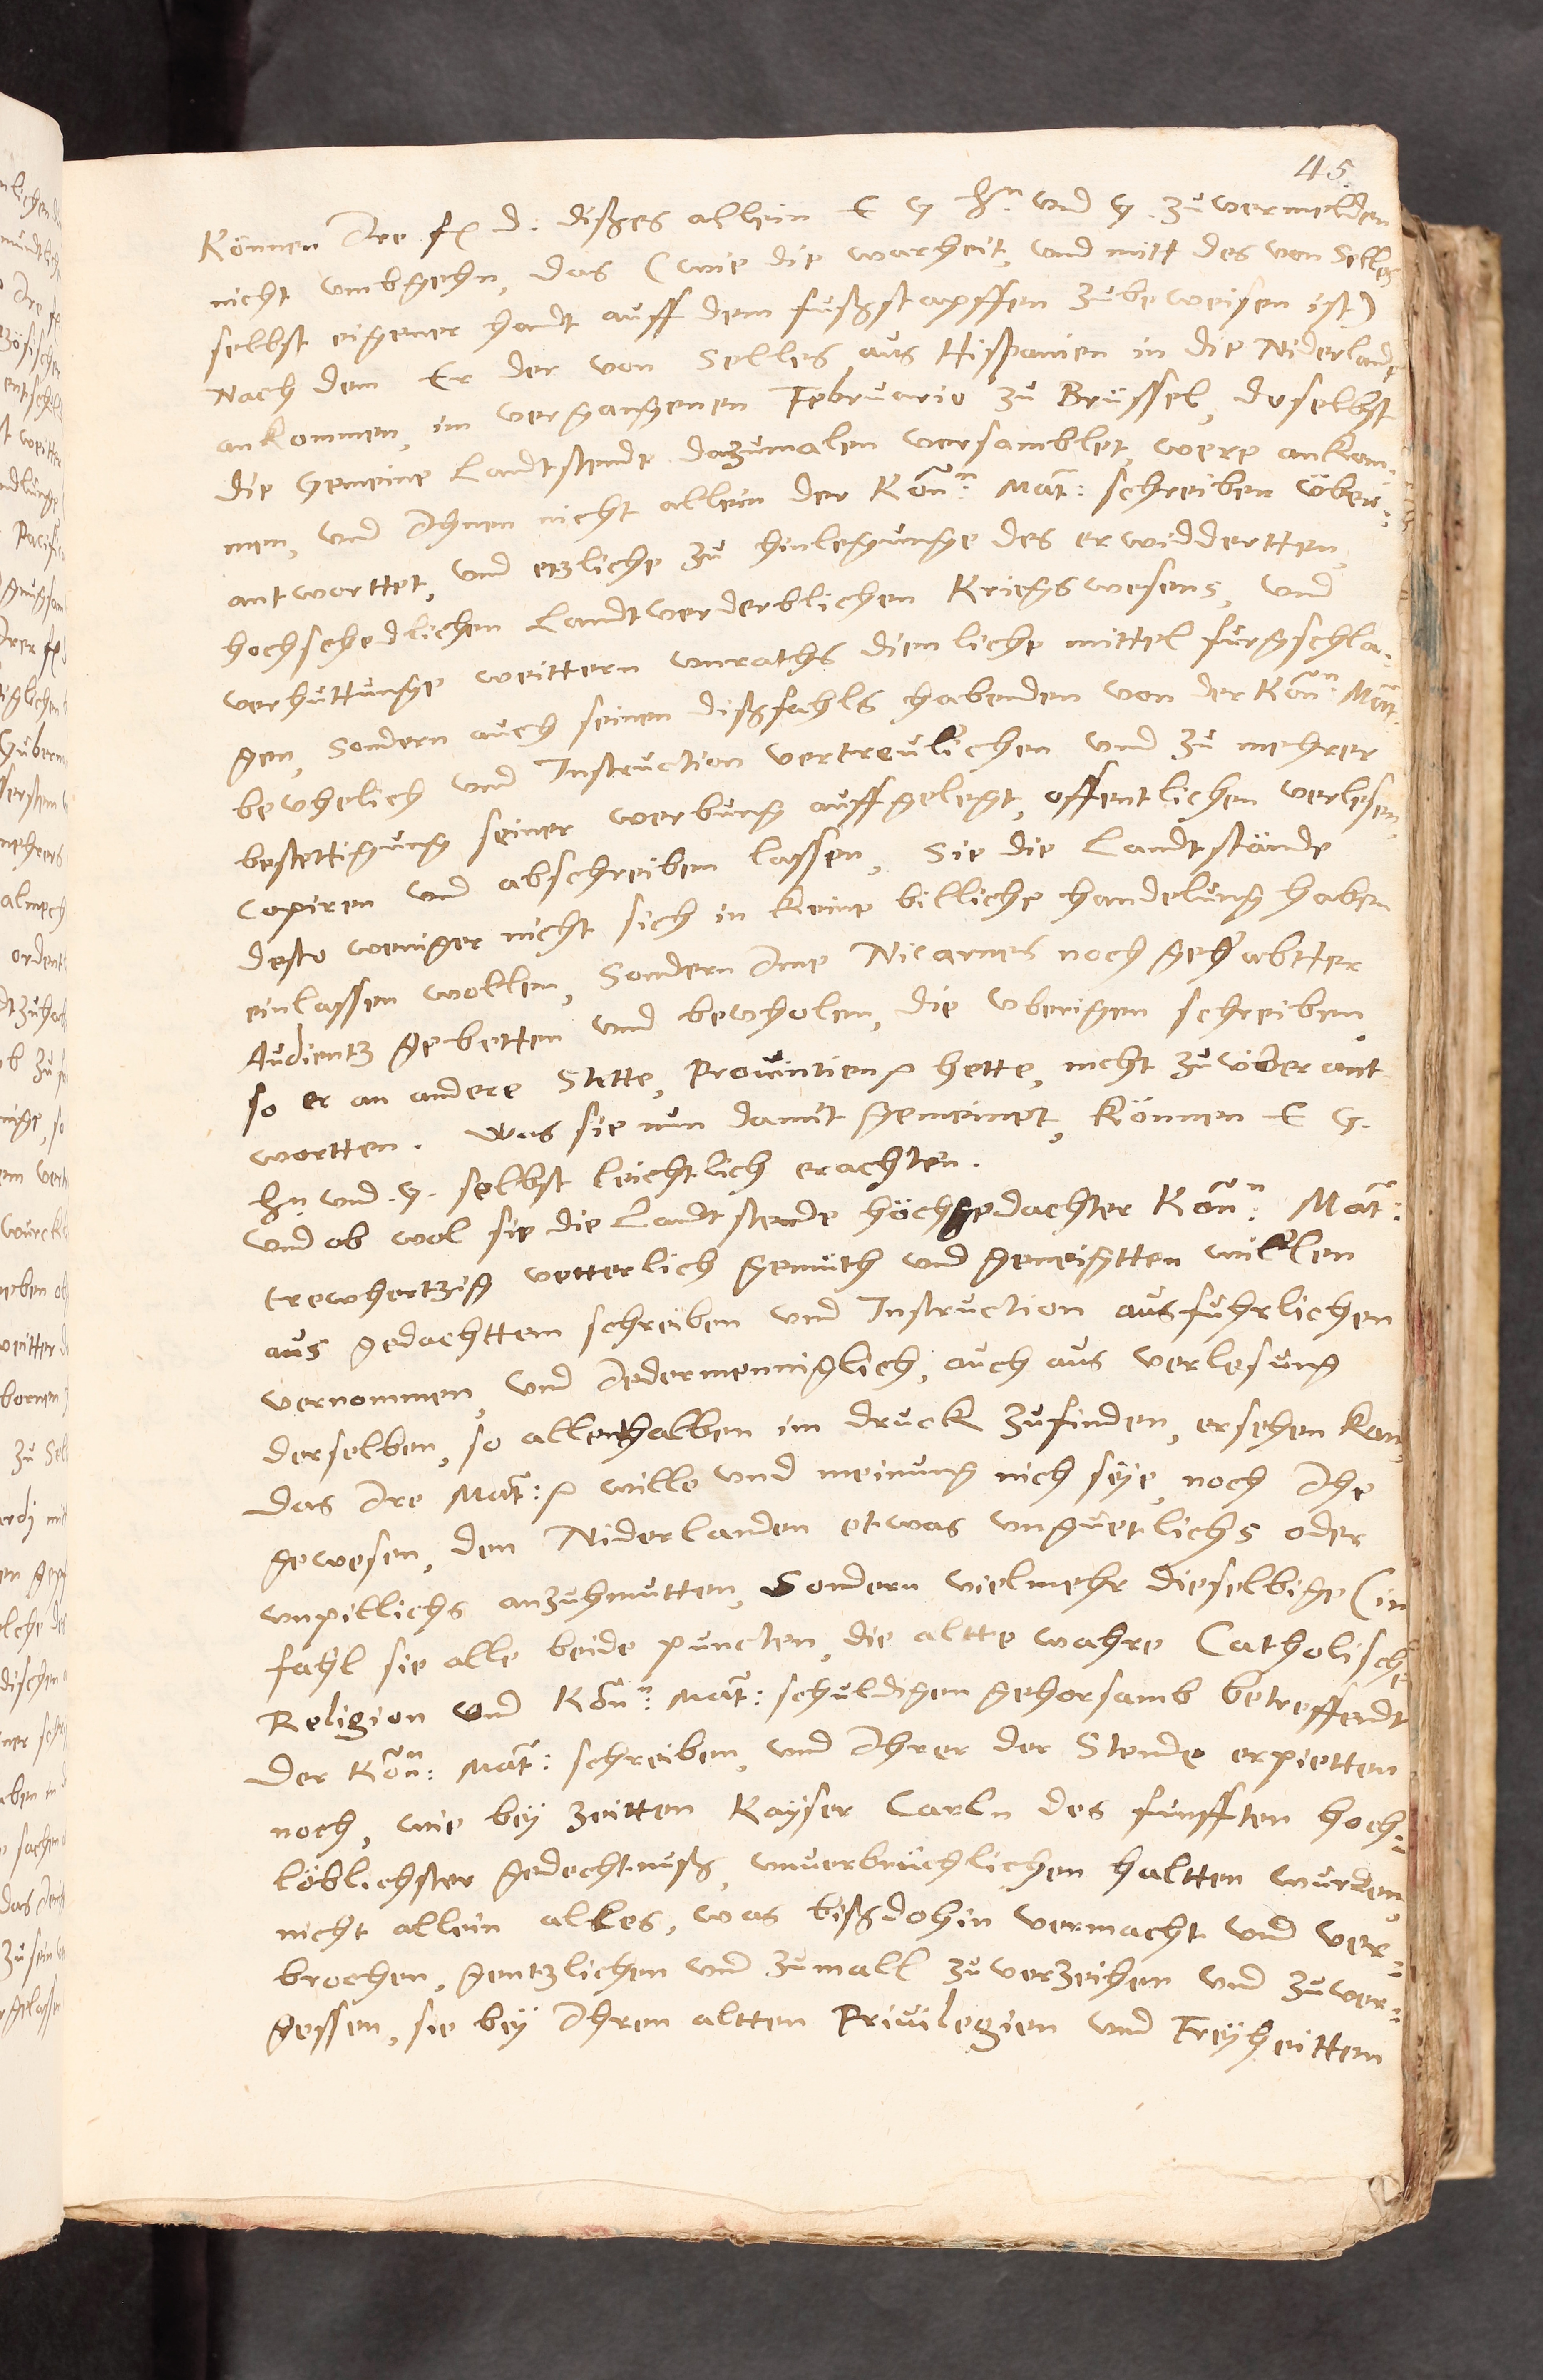 45.
Können Ire f d: dißes allein E G hn und G. zuvermelden
nicht umbgehn, das (wie die warheit, und mitt des von Selles
selbst eigener handt auff dem fußstapffen zubeweisen ist)
Nach dem Er der von Selles aus Hispanien in die Niderlandt
ankommen, im vergangenen Februario zu Brüssel, doselbst
die Gemeine Landtstendt dazumalen versamblet, were ankom-
men, und Ihnen nicht allein der Kön: Mat: schreiben über-
antworttet, und etzliche zu hinlegunge des erwidderten,
hochschedlichen Landtverderblichen Kriegswesens, und
verhuttunge weittern unraths dienliche mittel furgschla-
gen, Sondern auch seinen dißfahls habenden von der Kön: Mat:
bevhelich und Instruction vertreulichen und zu mehrer
bestettigung seiner werbung auffgelegt, offentlichen verlesen,
Copiren und abschreiben lassen, Sie die Landtstände
desto weniger nicht sich in keine billiche handelung haben
einlassen wollen, Sondern Ime Nicarnes noch gehabtter
Audientz gebetten und bevholen, die uberigen schreiben,
so er an andere Stette, Provintien hette, nicht zuüberant
wortten. Was sie nun damit gemeinet, können E G.
hn und G. selbst leichtlich erachten.
Und ob wol sie die Landtstende höchgedachter Kön: Mat:
trewhertzig vetterlich gemüth und geneigtten willen
aus gedachttem schreiben und Instruction ausfuhrlichen
vernommen, und Idermenniglich, auch aus verlesung
derselben, so allenthalben im druck zufinden, ersehen kan,
das Ire Mat: wille und meinung nich seye, noch Ihe
gewesen, den Niderlanden etwas unguetlichs oder
unpillichs anzuhmutten, Sondern vielmehr dieselbige (in
fahl sie alle beide puncten, die altte wahre Catholische
Religion und Kön: Mat: schuldigen gehorsamb betreffendt
der Kön: Mat: schreiben, und Ihrer der Stende erpietten
noch, wie bey zeitten Kayser Carln des funfften hoch-
löblichster gedechtnuß, unverbruchlichen haltten wurden,
nicht allein alles, was bißdohin vermacht und ver-
brochen, gentzlichen und zumall zuverzeihen und zuver-
gessen, sie bey Ihren altten Privilegien und Freyheitten